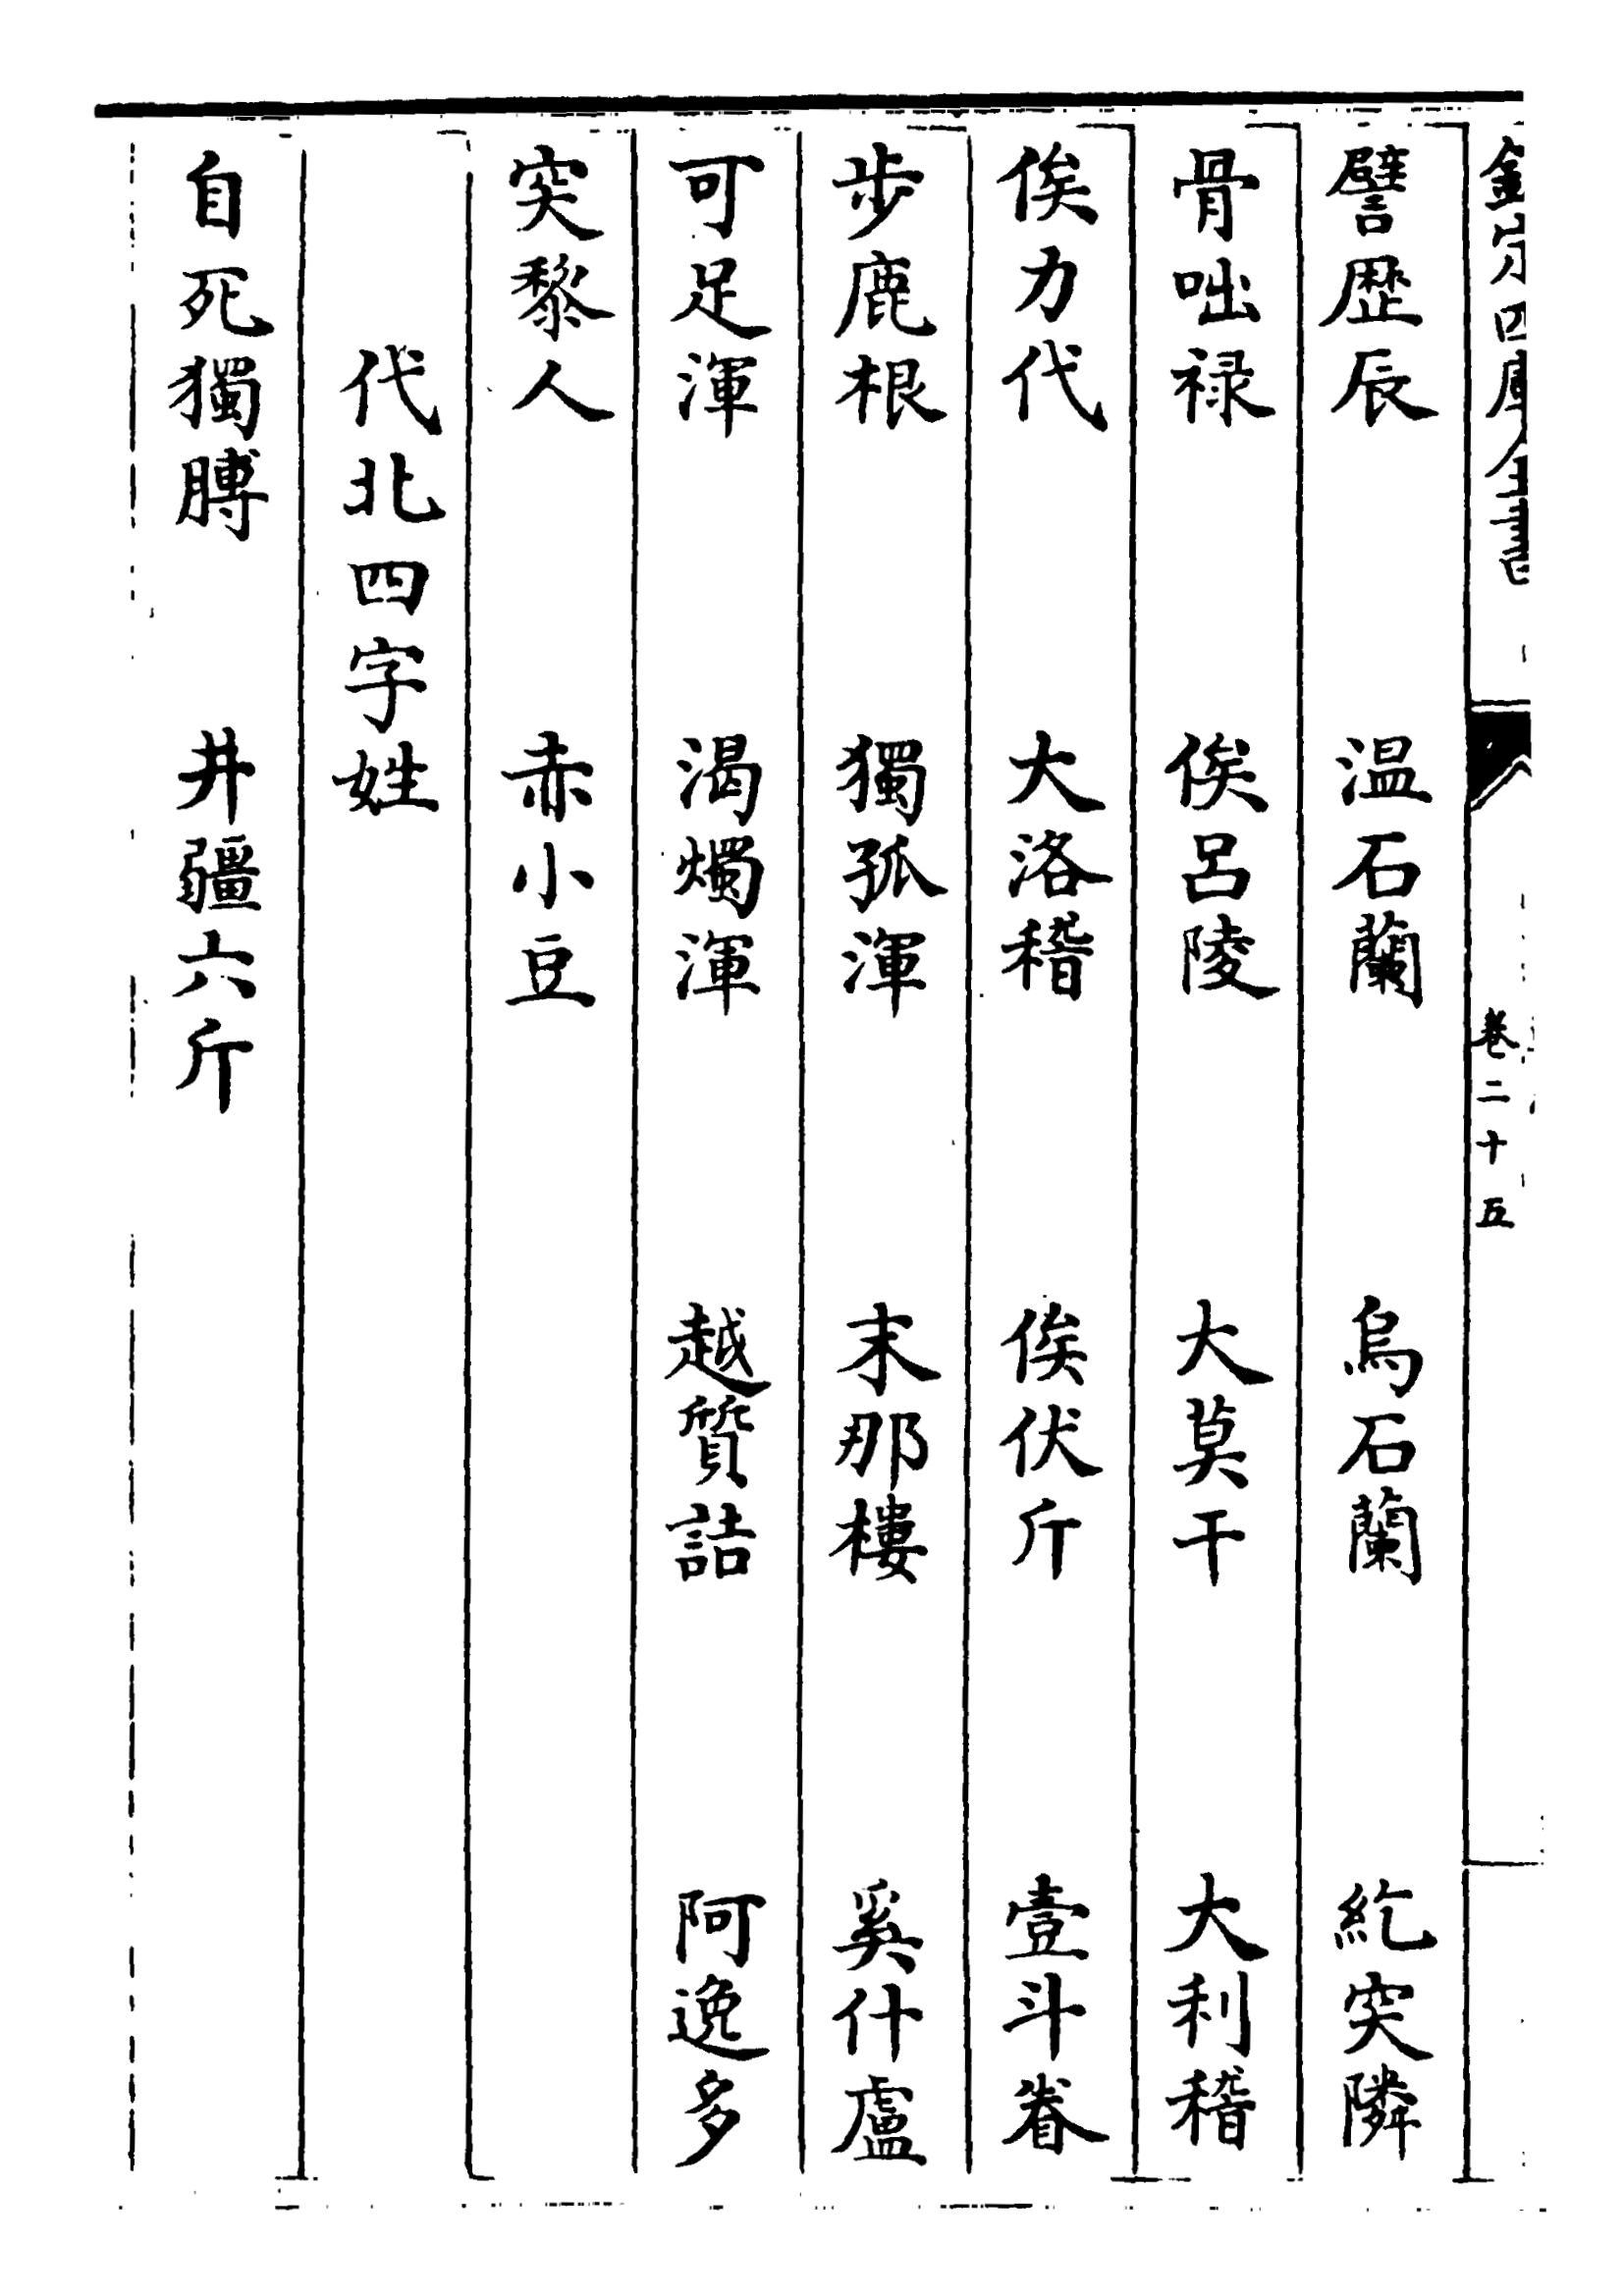 欽定四庫全書
卷二十五
譬歴辰　温石蘭　烏石蘭　紇突隣
骨咄禄　俟吕陵　大莫干　大利稽
俟力代　大洛稽　俟伏斤　壹斗眷
步鹿根　獨孤渾　末那樓　奚什盧
可足渾　渴燭渾　越質詰　阿逸多
突黎人　赤小豆
代北四字姓
自死獨膊　井疆六斤